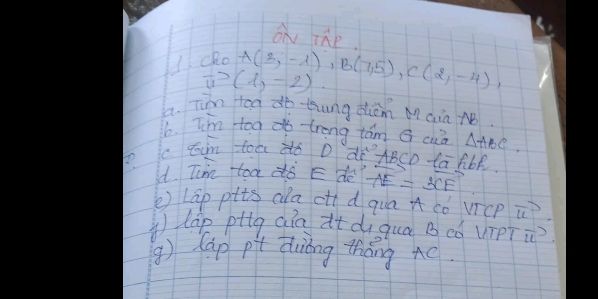 ÔN TẬP.
1. Cho A(3,-1), B(7,5), C(2,-4),
u→(1,-2).
a. Tìm tọa độ trung điểm M của AB.
b. Tìm tọa độ trọng tâm G của ΔABC.
c. Tìm tọa độ D để ABCD là hbh.
d. Tìm tọa độ E để AE→ = 3CE→
e) Lập ptts của đt d qua A có VTCP u→.
f) Lập pttq của đt d₁ qua B có VTPT u→.
g) Lập pt đường thẳng AC.